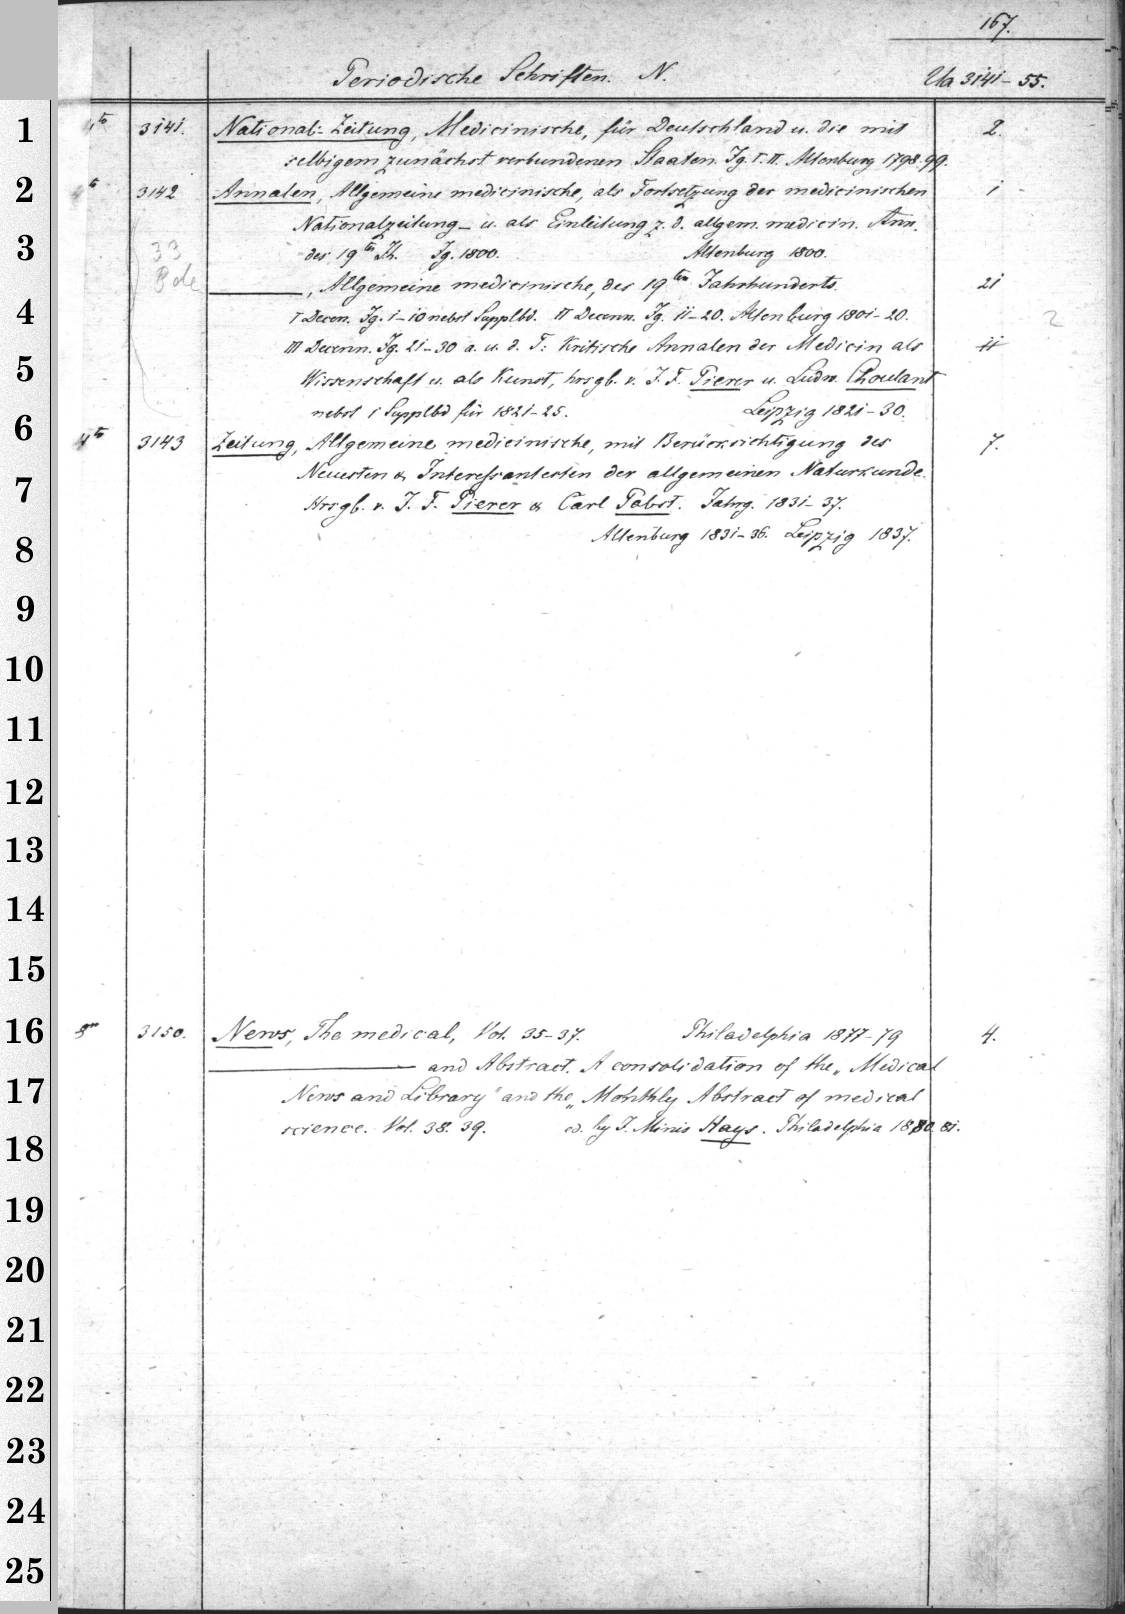 167.
Periodische Schriften. N. Ua 3141-55.
1
4to 3141. National-Zeitung, Medicinische, für Deutschland u. die mit 2.
selbigem zunächst verbundenen Staaten. Jg. I. II. Altenburg 1798. 99.
2
4to 3142 Annalen, Allgemeine medicinische, als Fortsetzung der medicinischen 1
Nationalzeitung u. als Einleitung z. d. allgem. medicin. Ann.
3
33
des 19ten Jh. Jg. 1800. Altenburg 1800.
——, Allgemeine medicinische, des 19ten Jahrhunderts. 21
4
I Decen. Jg. 1-10 nebst Supplbd. II Decenn. Jg. 11-20. Altenburg 1801-20. 2
III Decenn. Jg. 21-30 a. u. d. T: Kritische Annalen der Medicin als 11
5
Wissenschaft u. als Kunst, hrsgb. v. J. F. Pierer u. Ludw. Choulant
nebst 1 Supplbd für 1821-25. Leipzig 1821-30.
6
4to 3143 Zeitung, Allgemeine medicinische, mit Berücksichtigung des 7.
Neuesten & Interessantesten der allgemeinen Naturkunde.
7
Hrsgb. v. J. F. Pierer & Carl Pabst. Jahrg. 1831-37.
8
Altenburg 1831-36. Leipzig 1837.
9
10
11
12
13
14
15
16
8vo 3150. News, The medical, Vol. 35-37. Philadelphia 1877-79 4.
—— and Abstract. A consolidation of the „Medical
17
News and Library" and the „Monthly Abstract of medical
science. Vol. 38. 39. ed. by J. Minis Hays. Philadelphia 1880. 81.
18
19
20
21
22
23
24
25